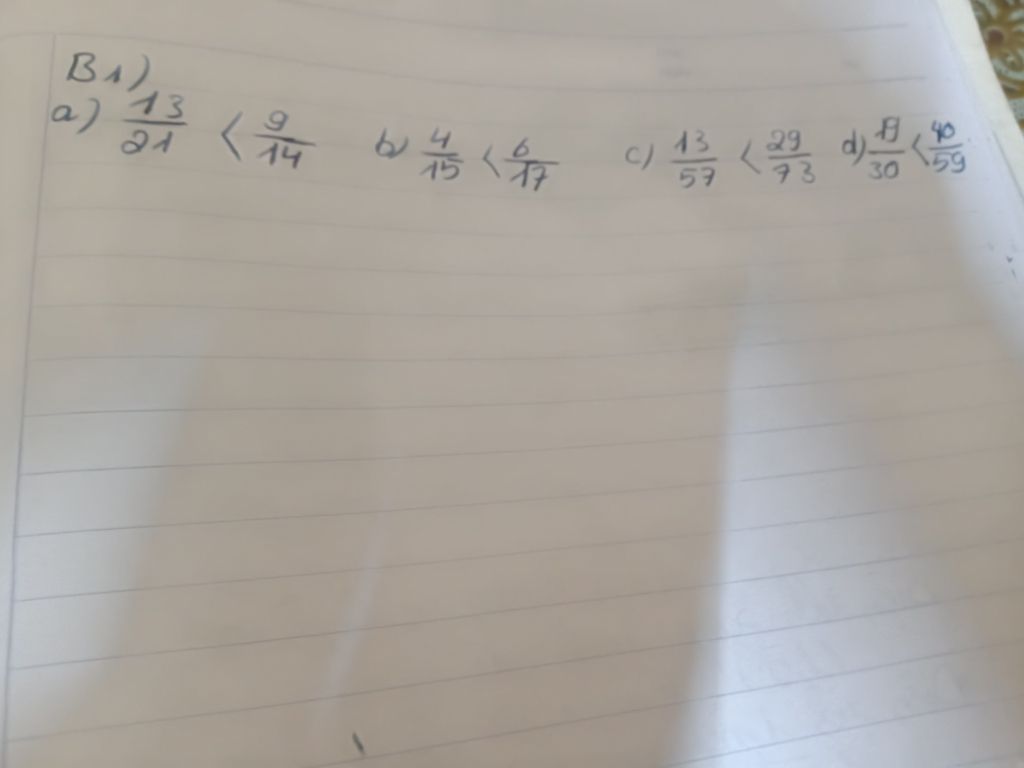 B1)
a) 13/21 < 9/14 b) 4/15 < 6/17 c) 13/57 < 29/73 d) 19/30 < 40/59